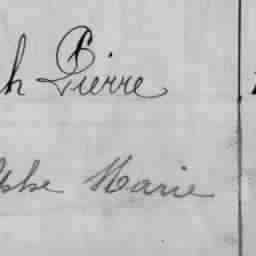 h Pierre
lphe Marie